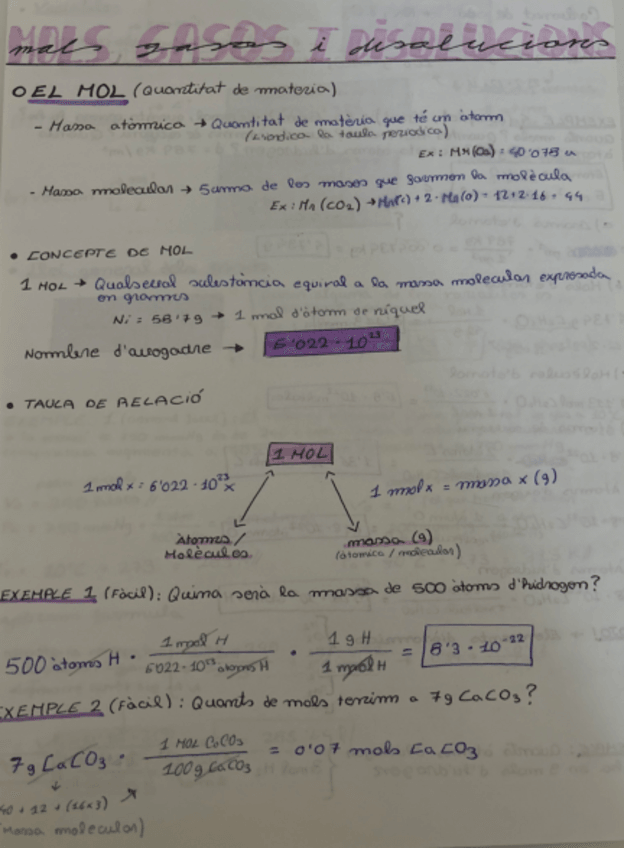 MOLS, GASOS I DISOLUCIONS
mols, gasos i disolucions
O EL MOL (Quantitat de materia)
- Massa atòmica → Quantitat de matèria que té un àtom
(L'indica la taula periodica)
Ex: Mr(Ca) = 40'078 u
- Massa molecular → Suma de les mases que formen la molècula
Ex: Mr (CO2) → Mr(C) + 2 · Mr(O) = 12 + 2·16 = 44
• CONCEPTE DE MOL
1 MOL → Qualsevol substància equival a la massa molecular expresada
en grams
Ni = 58'7g → 1 mol d'àtom de níquel
Nombre d'avogadre → 6'022 · 10²³
• TAULA DE RELACIÓ
1 MOL
1 mol x = 6'022 · 10²³ x
1 mol x = massa x (g)
àtoms / massa (g)
Molècules (atomica / molecular)
EXEMPLE 1 (Fàcil): Quina serà la massa de 500 àtoms d'hidrogen?
500 àtoms H · 1 mol H / 6022 · 10²³ àtoms H · 1 g H / 1 mol H = 8'3 · 10⁻²²
EXEMPLE 2 (Fàcil): Quants de mols tenim a 7g CaCO3?
7g CaCO3 · 1 MOL CaCO3 / 100g CaCO3 = 0'07 mols CaCO3
40 + 12 + (16x3)
(Massa molecular)